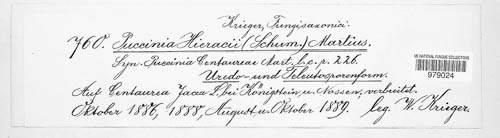 Krieger, Fungi saxonici.
760. Puccinia Hieracii (Schum.) Martius.
Syn. Puccinia Centaureae Mart. l. c. p. 226.
Uredo- und Teleutosporenform.
Auf Centaurea Jacea L. bei Königstein u. Nossen, verbreitet.
Oktober 1886, 1888, August u. Oktober 1889. leg. W. Krieger.
US NATIONAL FUNGUS COLLECTIONS
979024